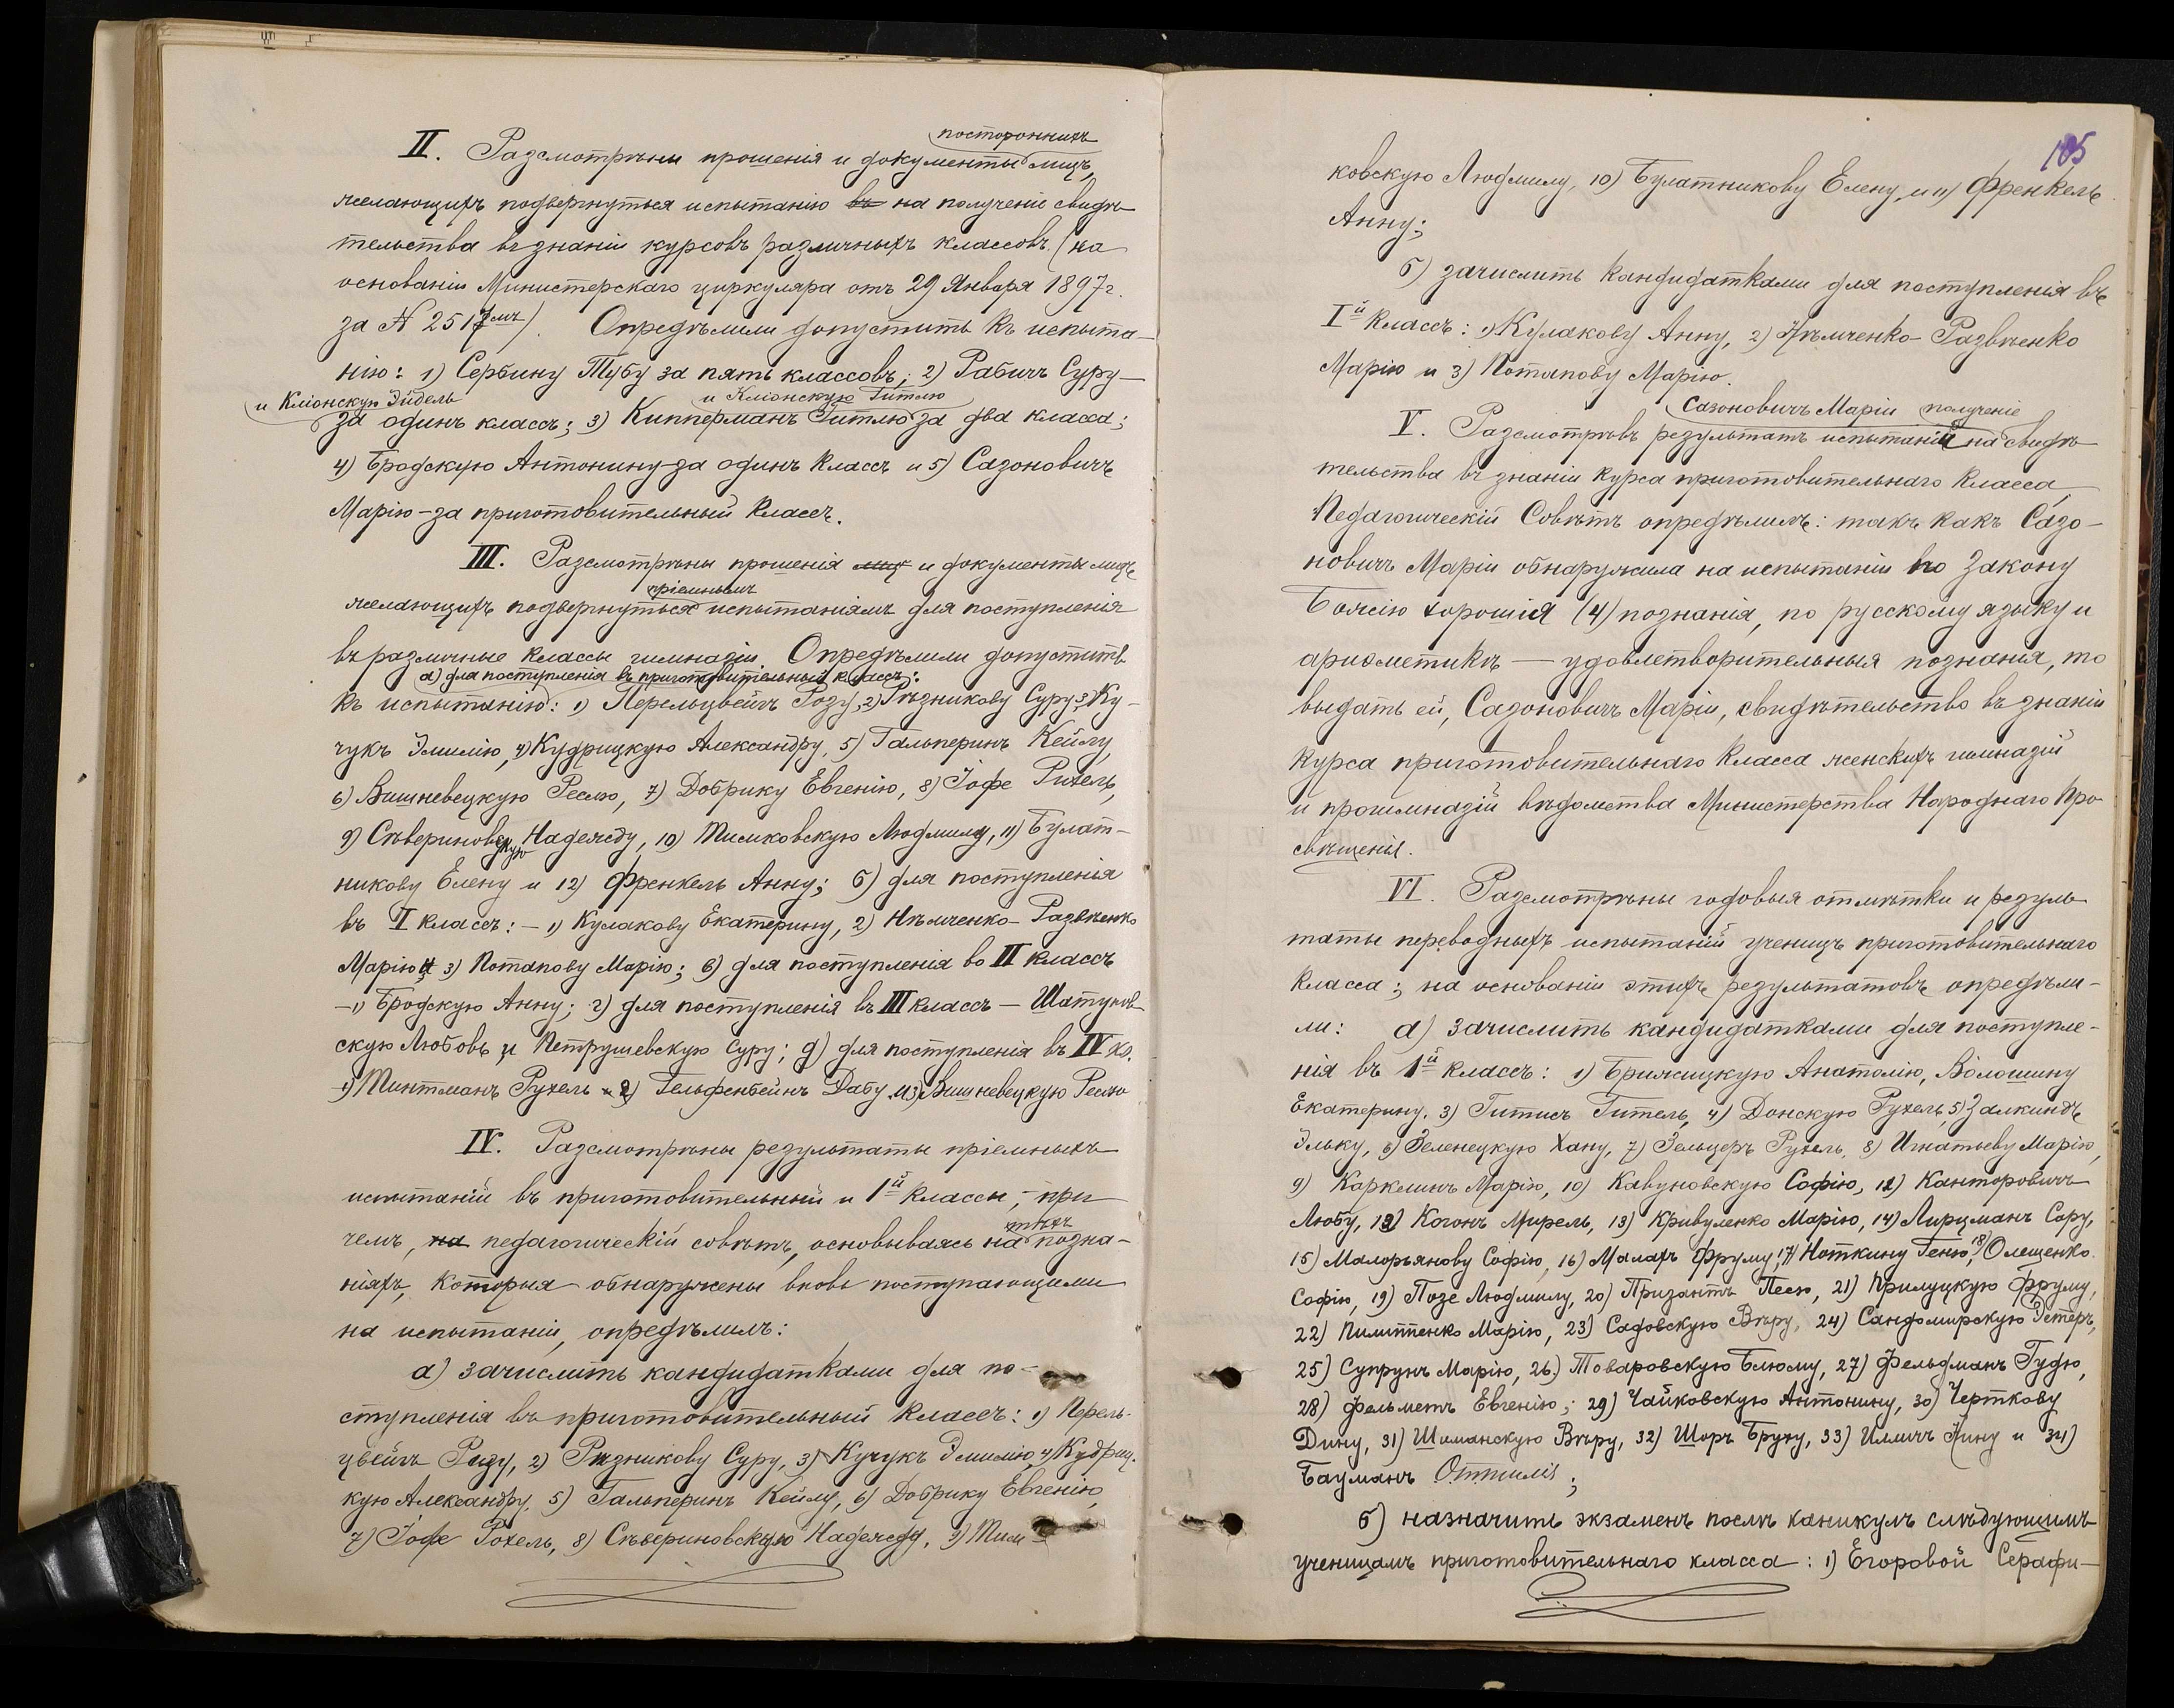 II. Разсмотрѣны прошенія и документы постороннихъ лицъ,
желающихъ подвергнуться испытанію въ на полученіе свидѣ-
тельства въ знаніи курсовъ различныхъ классовъ (на
основаніи Министерскаго циркуляра отъ 29 Января 1897 г.
за № 2517мъ). Опредѣлили допустить къ испыта-
нію: 1) Сербину Тубу за пять классовъ; 2) Рабичъ Суру
и Кліонскую Эйдель за одинъ классъ; 3) Кипперманъ Гитлю и Кліонскую Гитлю за два класса;
4) Бродскую Антонину-за одинъ классъ и 5) Сазоновичъ
Марію-за приготовительный классъ.
III. Разсмотрѣны прошенія лиц и документы лицъ
желающихъ подвергнуться пріемнымъ испытаніямъ для поступленія
въ различные классы гимназіи. Опредѣлили допустить
а) для поступленія въ приготовительный классъ:
къ испытанію: 1) Перельцвейгъ Розу, 2) Рѣзникову Суру 3) Ку-
чукъ Эмилію, 4) Кудрицкую Александру, 5) Гальперинъ Кейлу,
6) Вишневецкую Рейзю, 7) Добрику Евгенію, 8) Іофе Рухель,
9) Сѣвериновскую Надежду, 10) Тимковскую Людмилу, 11) Булат-
никову Елену и 12) Френкель Анну; б) для поступленія
въ I классъ: - 1) Кулакову Екатерину, 2) Нѣмченко-Развѣенко
Марію и 3) Потапову Марію; в) для поступленія во II классъ
-1) Бродскую Анну; г) для поступленія въ III классъ - Шатунов-
скую Любовь и Петрушевскую Суру; д) для поступленія въ IV кл.
-1) Тинтманъ Рухель 2) Гельфенбейнъ Дабу и 3) Вишневецкую Рейзю
IV. Разсмотрѣны результаты пріемныхъ
испытаній въ приготовительный и 1й классы, - при
чемъ, на педагогическій совѣтъ, основываясь на тѣхъ позна-
ніяхъ, которыя обнаружены вновь поступающими
на испытаніи, опредѣлилъ:
а) зачислить кандидатками для по-
ступленія въ приготовительный классъ: 1) Перель-
цвейгъ Розу, 2) Рѣзникову Суру, 3) Кучукъ Эмилію, 4) Кудриц-
кую Александру, 5) Гальперинъ Кейлу, 6) Добрику Евгенію,
7) Іофе Рохель, 8) Сѣвериновскую Надежду, 9) Тим-
105
ковскую Людмилу, 10) Булатникову Елену, и 11) Френкель
Анну;
б) зачислить кандидатками для поступленія въ
Iй классъ: 1) Кулакову Анну, 2) Нѣмченко-Развѣенко
Марію и 3) Потапову Марію.
V. Разсмотрѣвъ результатъ испытаній Сазоновичъ Маріи на полученіе свидѣ-
тельства въ знаніи курса приготовительнаго класса,
Педагогическій Совѣтъ опредѣлилъ: такъ какъ Сазо-
новичъ Марія обнаружила на испытаніи по Закону
Божію хорошія (4) познанія, по русскому языку и
ариѳметикѣ — удовлетворительныя познанія, то
выдать ей, Сазоновичъ Маріи, свидѣтельство въ знаніи
курса приготовительнаго класса женскихъ гимназій
и прогимназій вѣдомства Министерства Народнаго Про-
свѣщенія.
VI. Разсмотрѣны годовыя отмѣтки и резуль-
таты переводныхъ испытаній ученицъ приготовительнаго
класса; на основаніи этихъ результатовъ опредѣли-
ли: а) зачислить кандидатками для поступле-
нія въ 1й классъ: 1) Брижицкую Анатолію, Волошину
Екатерину, 3) Гитисъ Гитель, 4) Донскую Рухель, 5) Залкиндъ
Эльку, 6) Зеленецкую Хану, 7) Зельцеръ Рухель, 8) Игнатьеву Марію,
9) Каркелинъ Марію, 10) Кавуновскую Софію, 11) Канторовичъ
Любу, 12) Когонъ Мирель, 13) Кривуленко Марію, 14) Лирцманъ Сору,
15) Малорьянову Софію, 16) Малахъ Фруму, 17) Ноткину Геню, 18) Олещенко
Софію, 19) Позе Людмилу, 20) Призантъ Песю, 21) Прилуцкую Фруму,
22) Пилипенко Марію, 23) Садовскую Вѣру, 24) Сандомирскую Эстеръ,
25) Супрунъ Марію, 26) Товаровскую Блюму, 27) Фельдманъ Гудю,
28) Фельметъ Евгенію; 29) Чайковскую Антонину, 30) Черткову
Дину, 31) Шиманскую Вѣру, 32) Шоръ Бруху, 33) Иличъ Нину и 34)
Бауманъ Оттилію;
б) назначить экзаменъ послѣ каникулъ слѣдующимъ
ученицамъ приготовительнаго класса: 1) Егоровой Серафи-